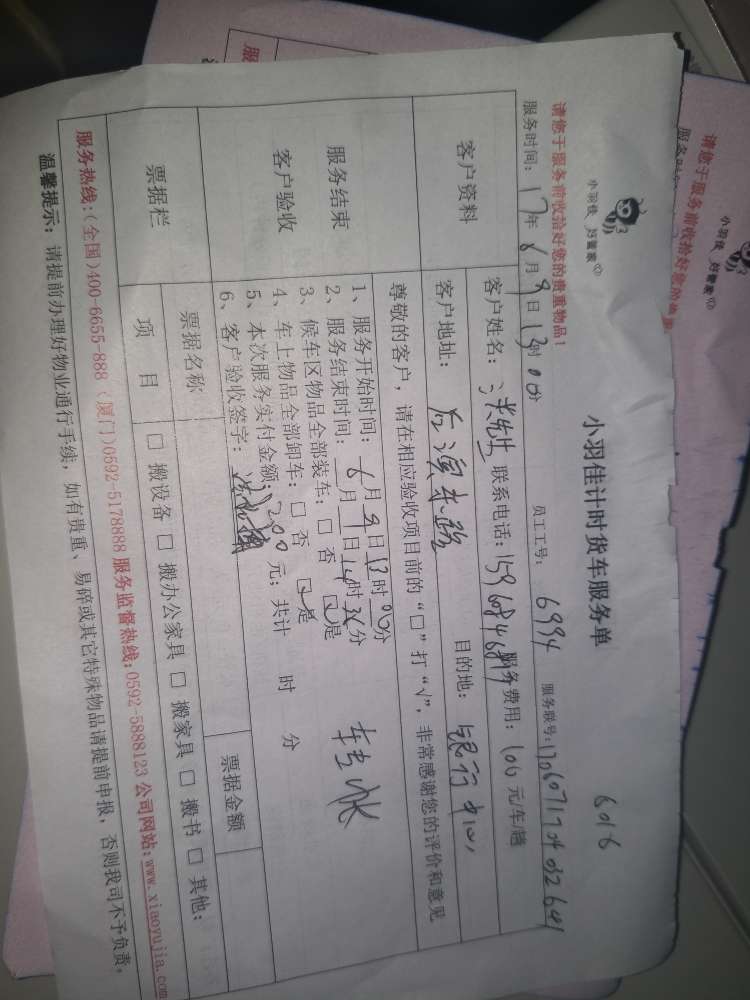 小羽佳计时货车服务单
6016
小羽佳 好管家
请您于服务前收拾好您的贵重物品！
员工工号: 6994 服务联号:
服务时间: 17年6月9日13时00分
客户资料
客户姓名: 洪先生 联系电话: 服务费用: 100元/车/趟
客户地址: 后滨东路 目的地: 银行中心
尊敬的客户，请在相应验收项目前的“□”打“√”，非常感谢您的评价和意见
服务结束
客户验收
1、服务开始时间: 6月9日13时00分
2、服务结束时间: 6月9日14时30分
3、候车区物品全部装车: □ 否 ☑是
4、车上物品全部卸车: □ 否 ☑是
5、本次服务实付金额: 200元; 共计 时 分
6、客户验收签字:
票据栏
票据名称
票据金额
项 目 □ 搬设备 □ 搬办公家具 □ 搬家具 □ 搬书 □ 其他:
服务热线:(全国)400-6655-888 (厦门)0592-5178888 服务监督热线:0592-5888123 公司网站:www.xiaoyujia.com
温馨提示: 请提前办理好物业通行手续，如有贵重、易碎或其它特殊物品请提前申报，否则我司不予负责,
小羽佳 好管家
请您于服务前收拾好您的贵重